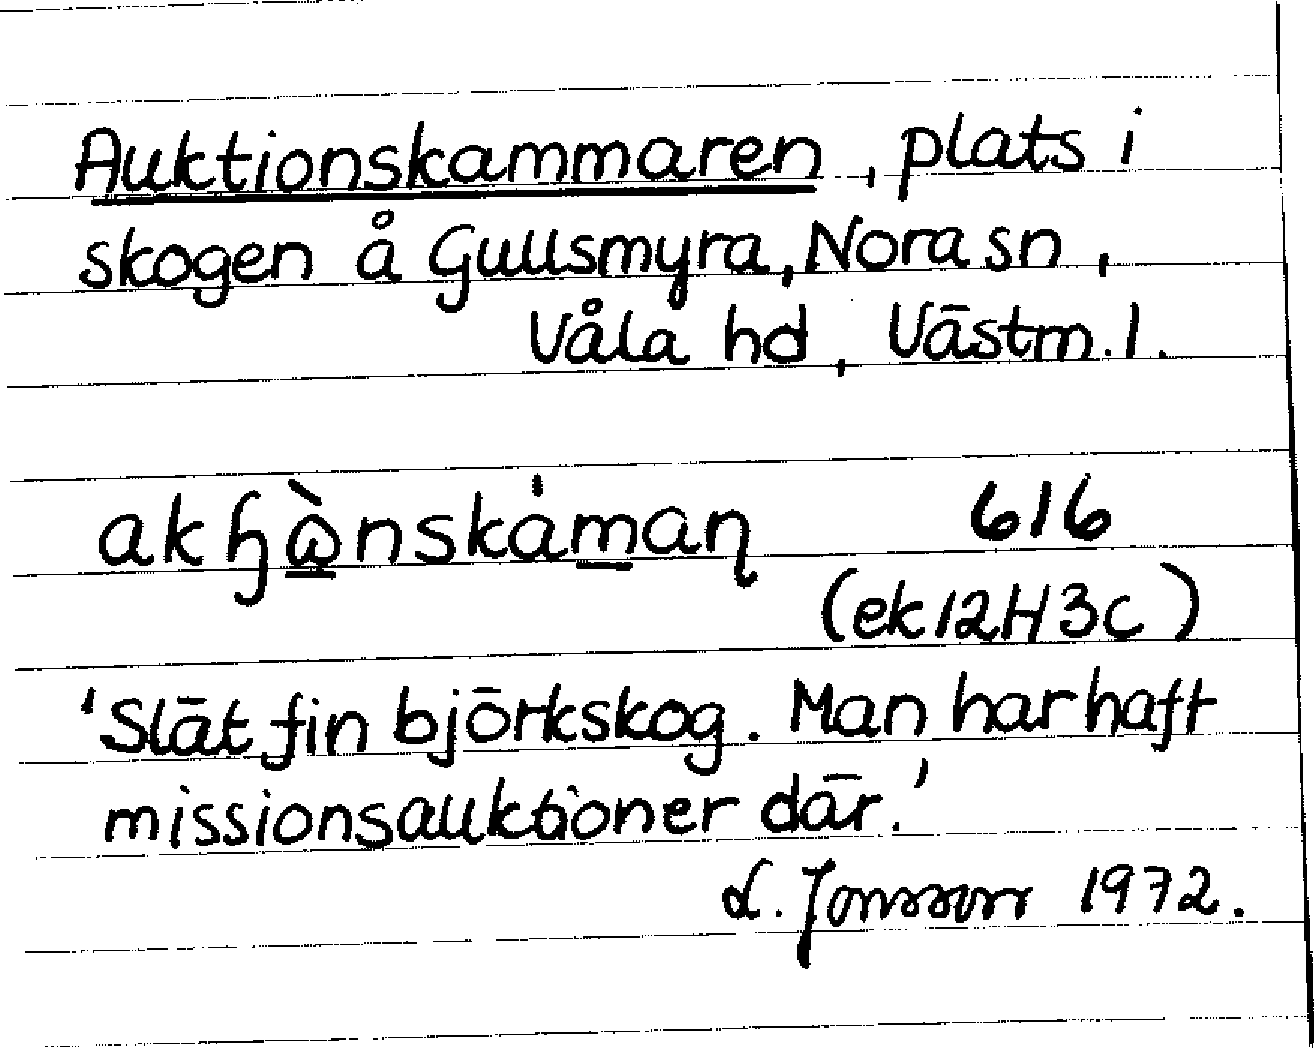 Auktionskammaren, plats i
skogen å Gullsmyra, Nora sn,
Våla hd, Västm. l.
akɧὼnskáman 616
(ek 12H3c)
'Slät fin björkskog. Man har haft
missionsauktioner där.'
L. Jonsson 1972.